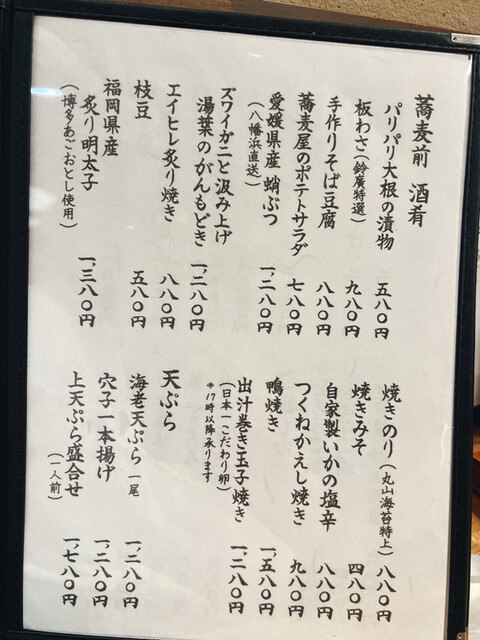 蕎麦前 酒肴
パリパリ大根の漬物 五八〇円
板わさ(鈴廣特選) 九八〇円
手作りそば豆腐 八八〇円
蕎麦屋のポテトサラダ 七八〇円
愛媛県産 蛸ぶつ 一、二八〇円
(八幡浜直送)
ズワイガニと汲み上げ
湯葉のがんもどき 一、二八〇円
エイヒレ炙り焼き 八八〇円
枝豆 五八〇円
福岡県産
炙り明太子 一、三八〇円
(博多あごおとし使用)
焼きのり(丸山海苔特上) 八八〇円
焼きみそ 四八〇円
自家製いかの塩辛 八八〇円
つくねかえし焼き 九八〇円
鴨焼き 一、五八〇円
出汁巻き玉子焼き 一、二八〇円
(日本一こだわり卵)
※17時以降承ります
天ぷら
海老天ぷら 一尾 一、二八〇円
穴子一本揚げ 一、二八〇円
上天ぷら盛合せ 一、七八〇円
(一人前)